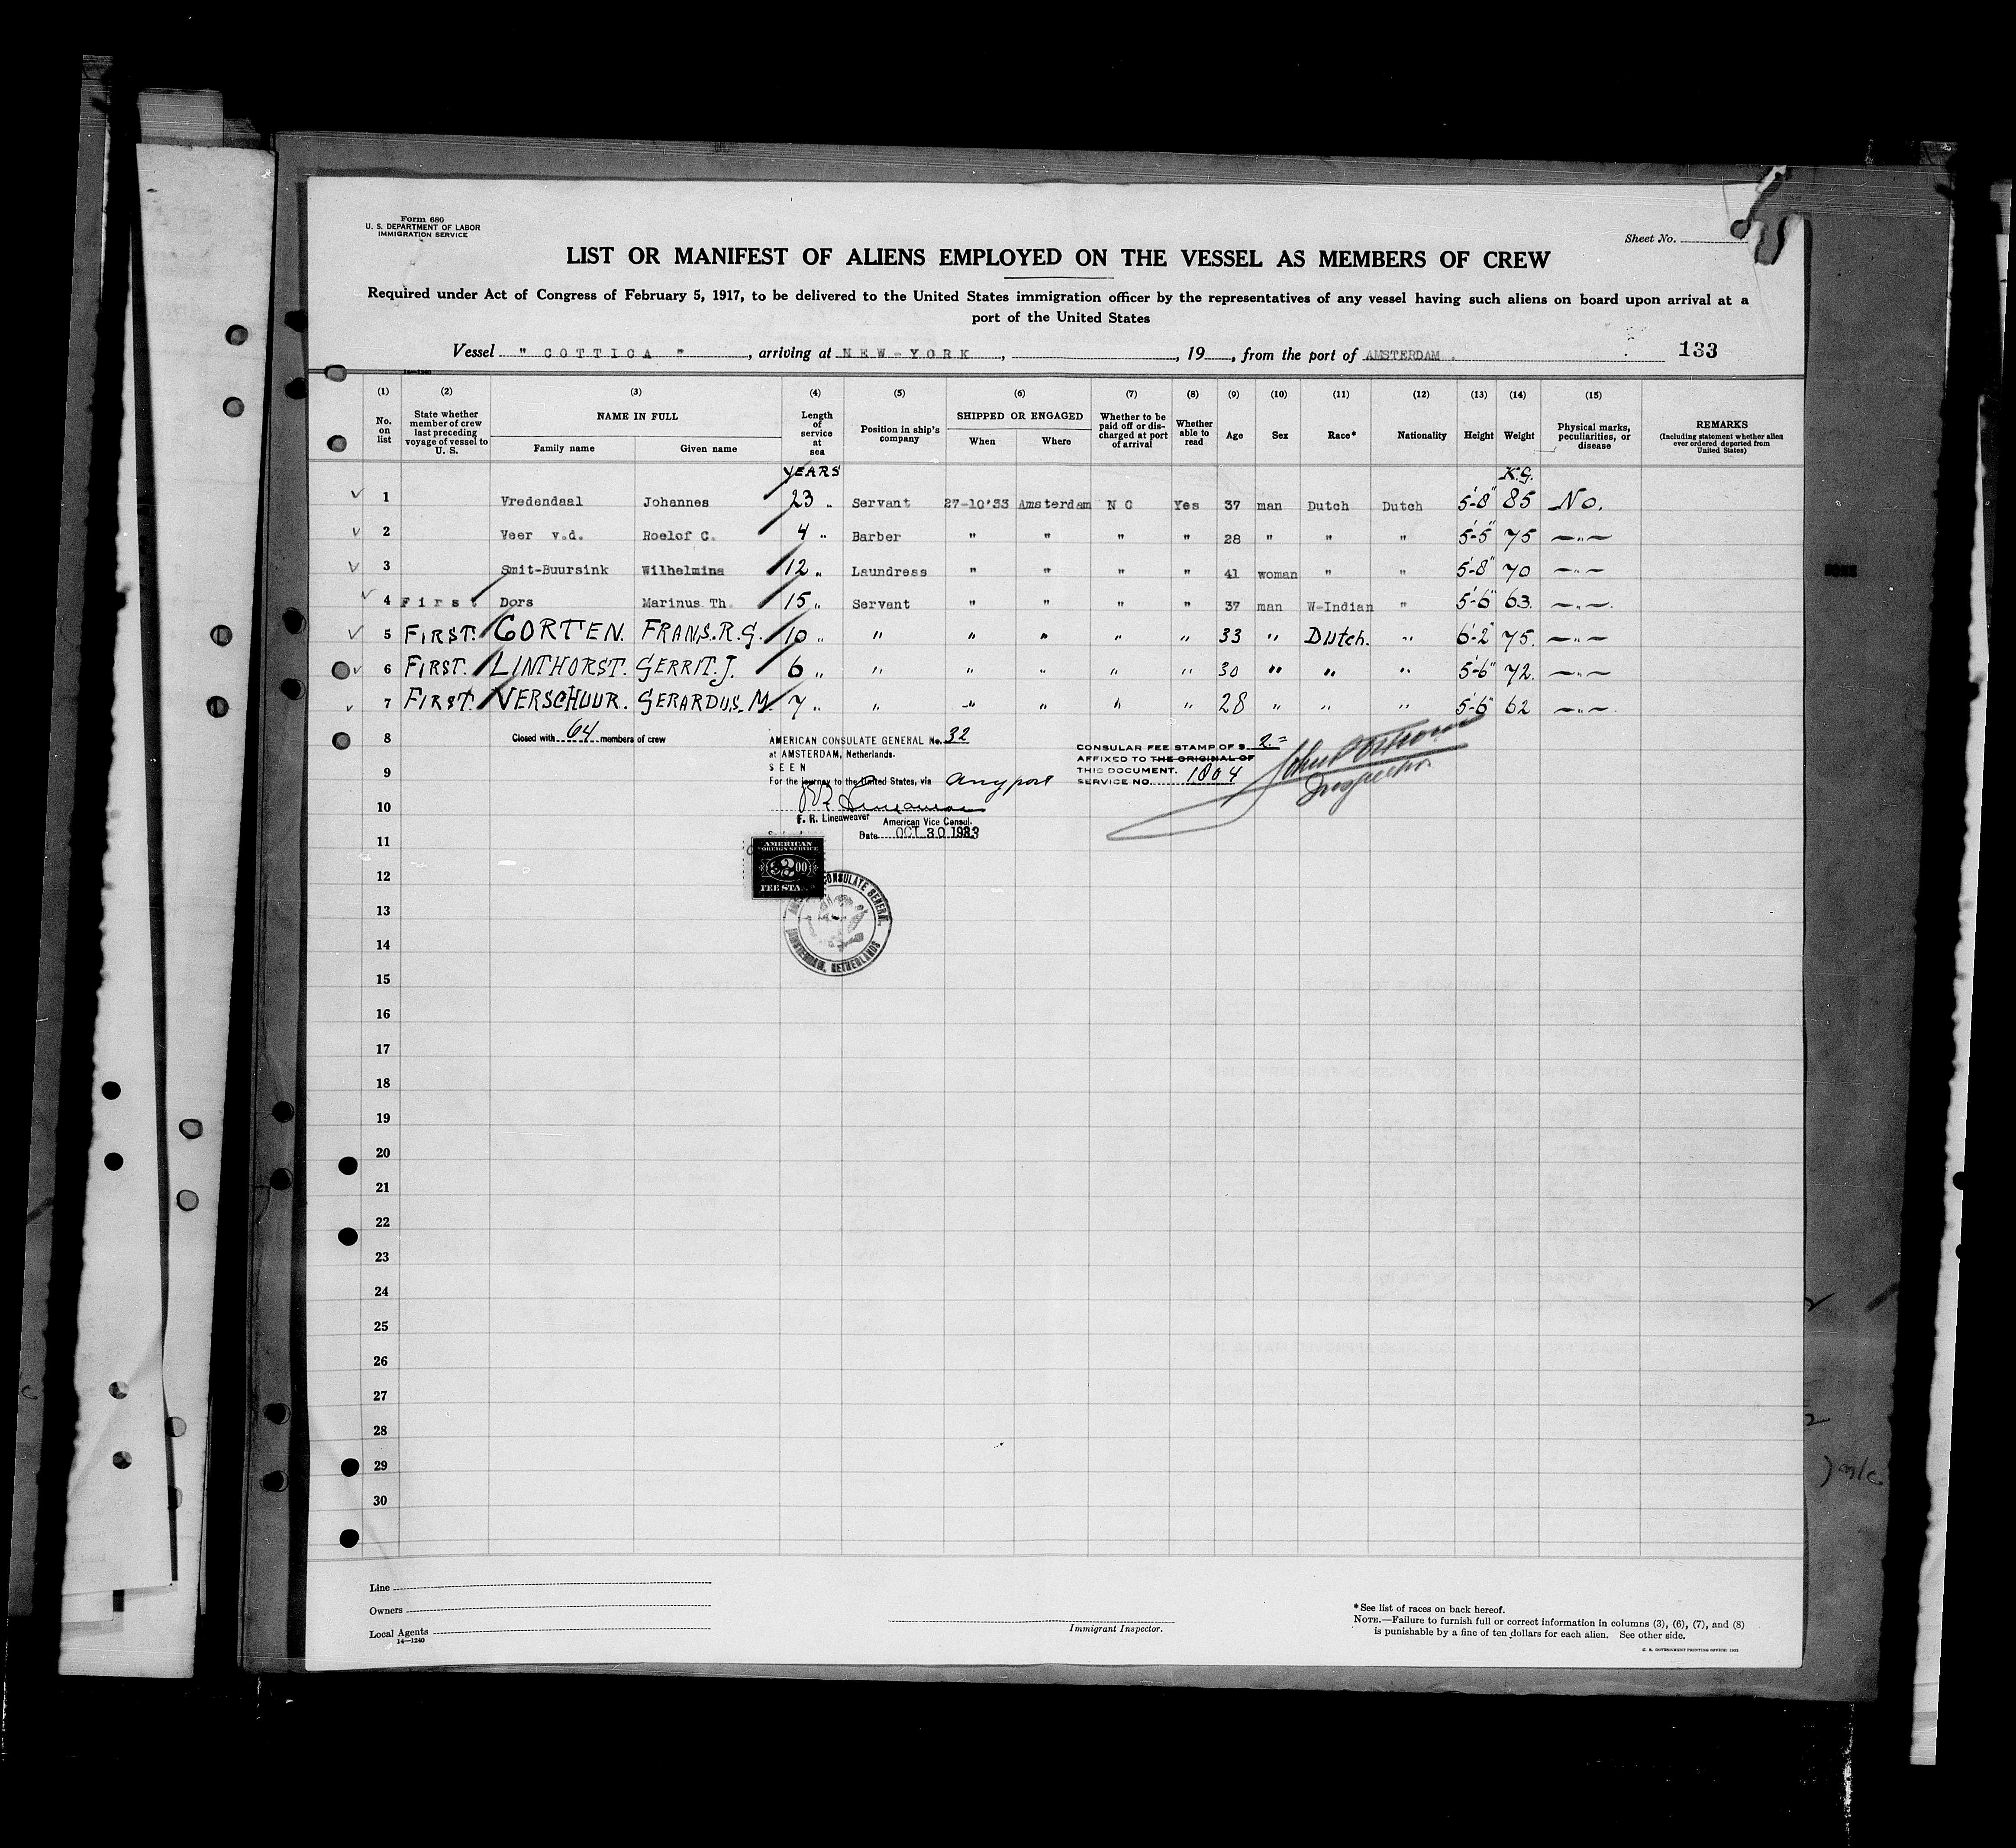 Form 680
U. S. DEPARTMENT OF LABOR
IMMIGRATION SERVICE
Sheet No.
LIST OR MANIFEST OF ALIENS EMPLOYED ON THE VESSEL AS MEMBERS OF CREW
Required under Act of Congress of February 5, 1917, to be delivered to the United States immigration officer by the representatives of any vessel having such aliens on board upon arrival at a
port of the United States
Vessel " COTTICA ", arriving at NEW-YORK, , 19 , from the port of AMSTERDAM. 133
14—1240
(1) (2) (3) (4) (5) (6) (7) (8) (9) (10) (11) (12) (13) (14) (15)
No. on list State whether member of crew last preceding voyage of vessel to U. S. NAME IN FULL Family name Given name Length of service at sea Position in ship's company SHIPPED OR ENGAGED When Where Whether to be paid off or discharged at port of arrival Whether able to read Age Sex Race* Nationality Height Weight Physical marks, peculiarities, or disease REMARKS (Including statement whether alien ever ordered deported from United States)
YEARS K.G.
1 Vredendaal Johannes 23 " Servant 27-10'33 Amsterdam N O Yes 37 man Dutch Dutch 5'-8" 85 No.
2 Veer v.d. Roelof C. 4 " Barber " " " " 28 " " " 5'-5" 75 —"—
3 Smit-Buursink Wilhelmina 12 " Laundress " " " " 41 woman " " 5'-8" 70 —"—
4 First Dors Marinus Th. 15 " Servant " " " " 37 man W-Indian " 5'-6" 63. —"—
5 FIRST. GORTEN. FRANS.R.G. 10 " " " " " " 33 " Dutch. " 6'-2" 75. —"—
6 FIRST. LINTHORST. GERRIT.J. 6 " " " " " " 30 " " " 5'-6" 72. —"—
7 FIRST. VERSCHUUR. GERARDUS.M. 7 " " " " " " 28 " " " 5'-6" 62 —"—
8 Closed with 64 members of crew
AMERICAN CONSULATE GENERAL No. 32
at AMSTERDAM, Netherlands.
SEEN
For the journey to the United States, via any port
F. R. Lineaweaver American Vice Consul.
Date OCT 30 1933
CONSULAR FEE STAMP OF $ 2.=
AFFIXED TO THE ORIGINAL OF
THIS DOCUMENT.
SERVICE NO. 1804
Inspector
AMERICAN
FOREIGN SERVICE
$2.00
FEE STA
CONSULATE GENERAL
AMSTERDAM, NETHERLANDS
9
10
11
12
13
14
15
16
17
18
19
20
21
22
23
24
25
26
27
28
29
30
Line
Owners
Local Agents
14—1240
Immigrant Inspector.
* See list of races on back hereof.
NOTE.—Failure to furnish full or correct information in columns (3), (6), (7), and (8)
is punishable by a fine of ten dollars for each alien. See other side.
U. S. GOVERNMENT PRINTING OFFICE: 1932